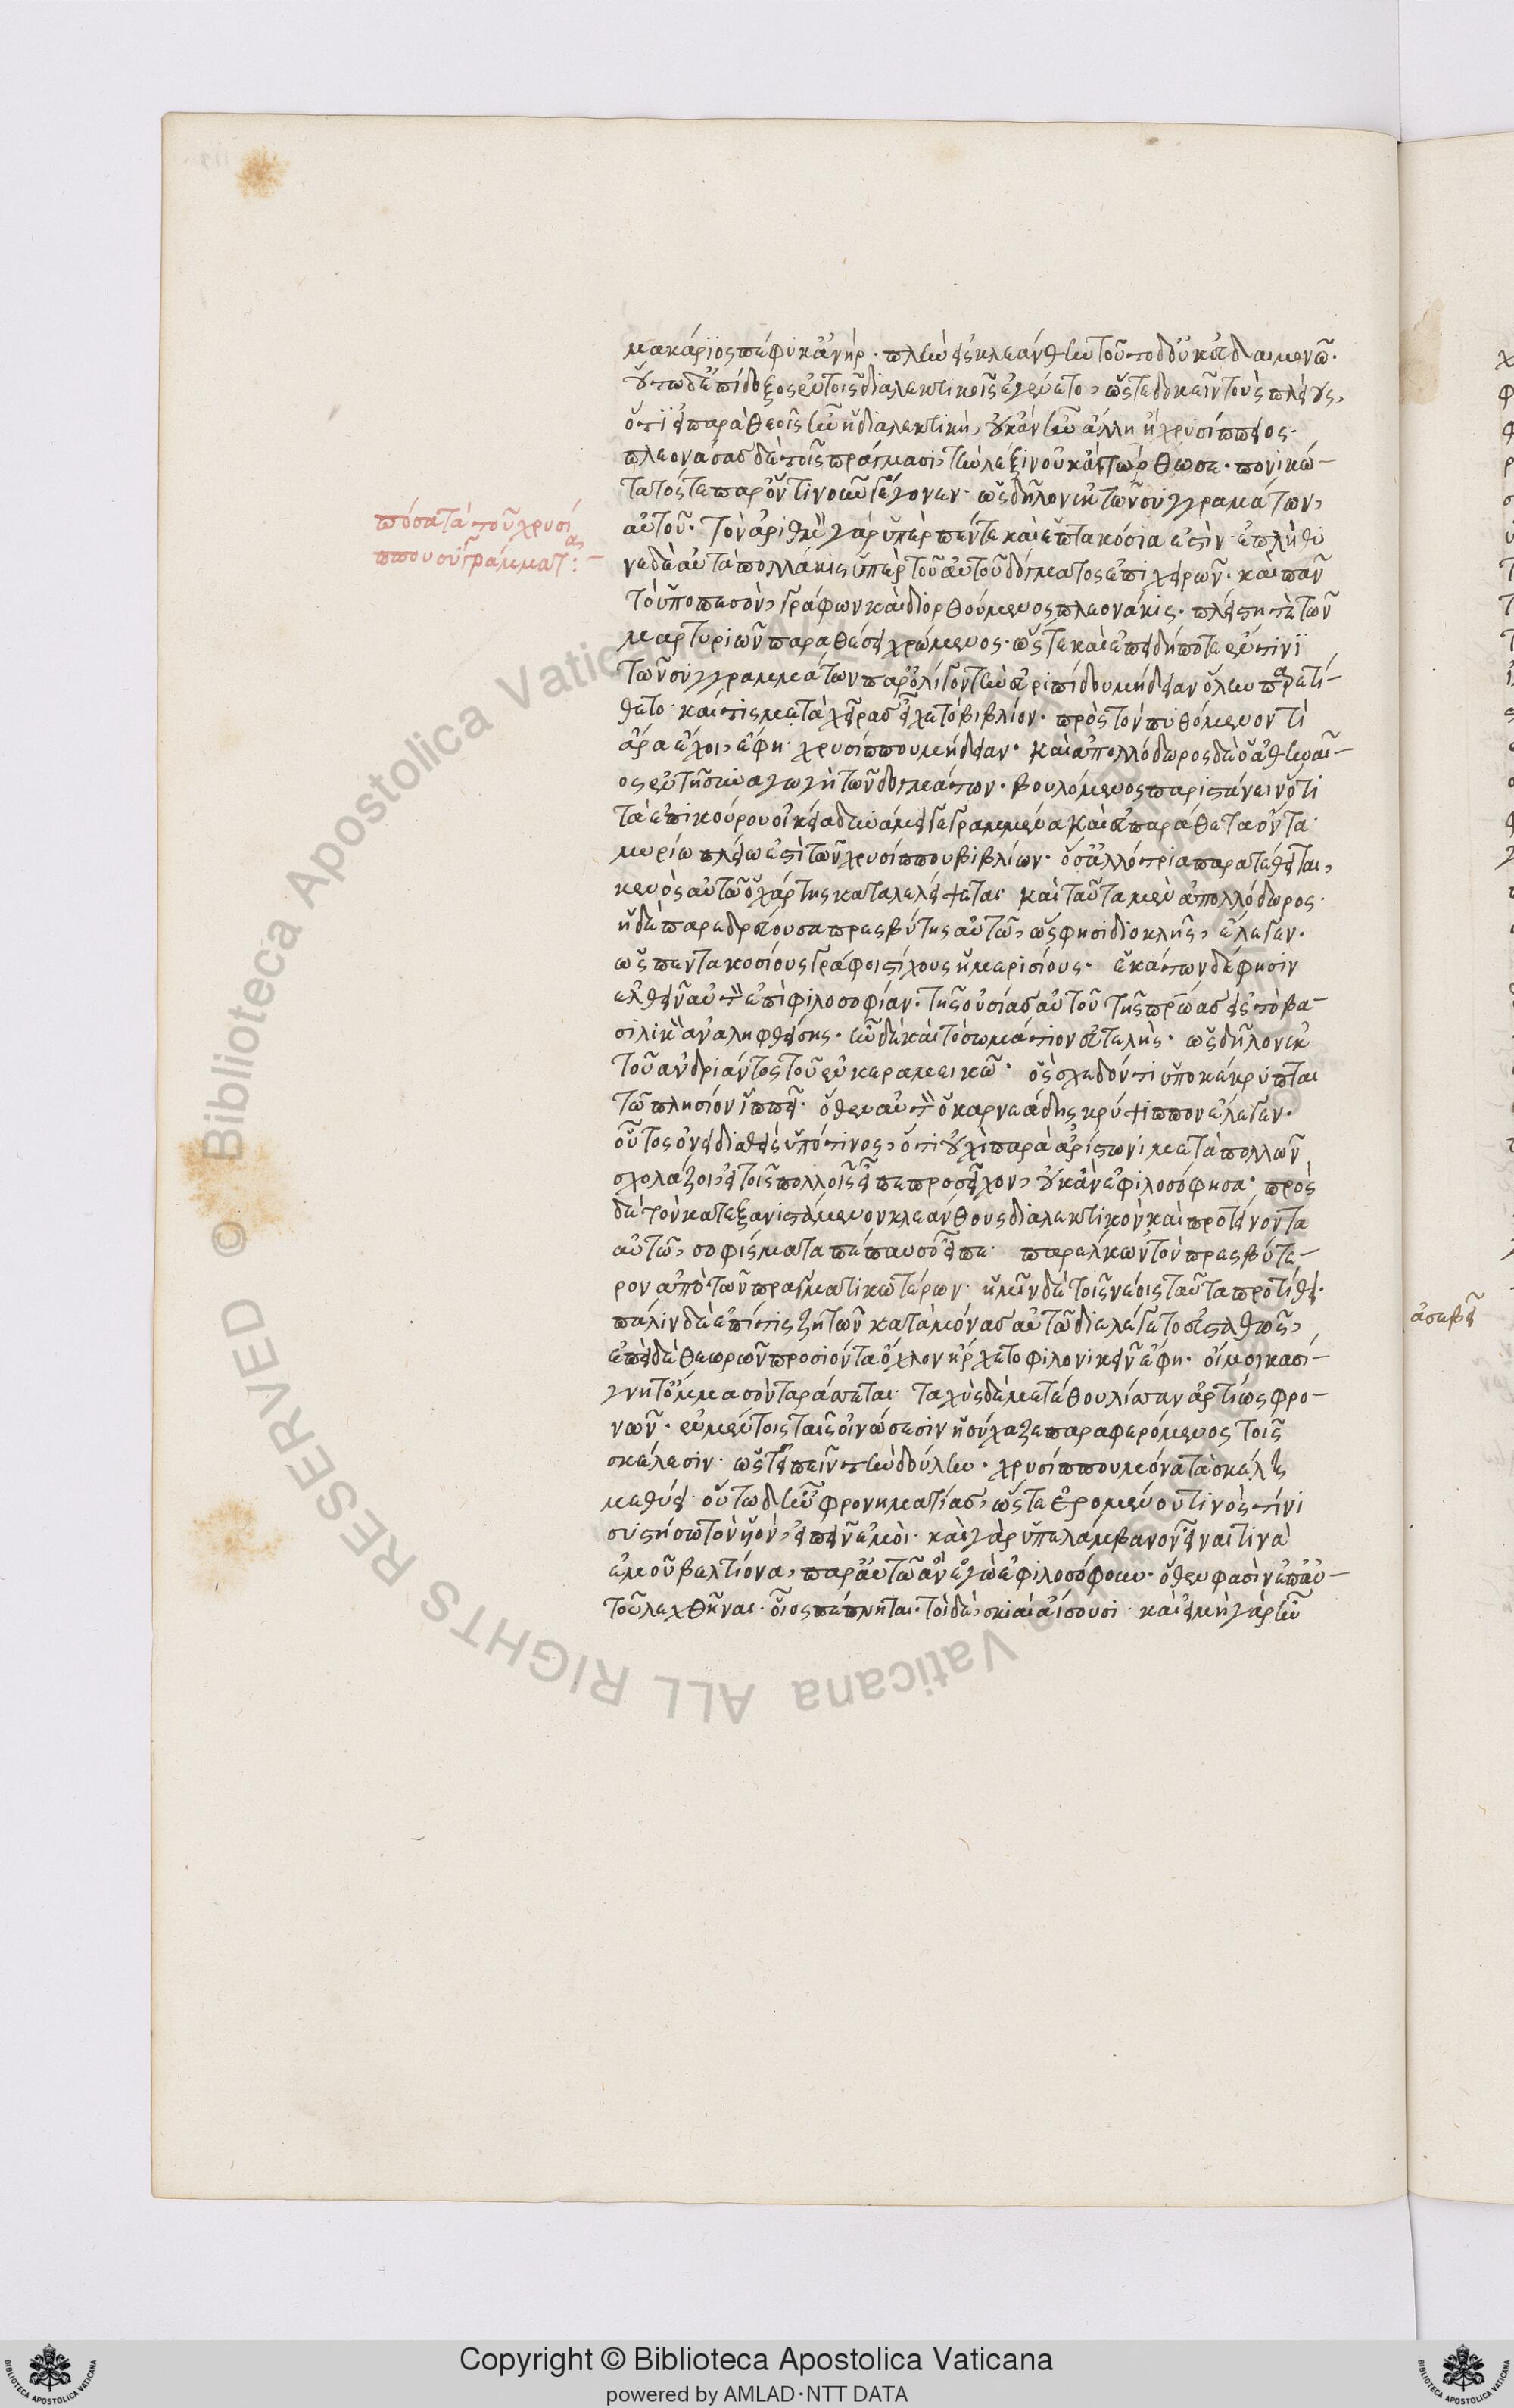 μακάριος πέφυκ' ἀνήρ. πλὴν εἰς κλεάνθην τοῦτο δ' οὐκ εὐδαιμονῶ.
οὕτω δ' ἐπίδοξος ἐν τοῖς διαλεκτικοῖς ἐγένετο, ὥστε δοκεῖν τοὺς πλείους,
ὅτι εἰ παρὰ θεοῖς ἦν ἡ διαλεκτικὴ, οὐκ ἂν ἦν ἄλλη ἢ ἡ χρυσίππειος.
πλεονάσας δὲ τοῖς πράγμασι, τὴν λέξιν οὐ κατώρθωσε. πονικώ-
τατός τε παρ' ὁντινοῦν γέγονεν. ὡς δῆλον ἐκ τῶν συγγραμάτων
αὐτοῦ. τὸν ἀριθμὸν γὰρ ὑπὲρ πέντε καὶ ἑπτακόσια ἐστίν. ἐπλήθυ
νε δὲ αὐτὰ πολλάκις ὑπὲρ τοῦ αὐτοῦ δόγματος ἐπιχειρῶν. καὶ πᾶν
τὸ ὑποπεσὸν γράφων καὶ διορθούμενος πλεονάκις. πλείστη τε τῶν
μαρτυριῶν παραθέσει χρώμενος. ὥστε καὶ ἐπειδήποτε ἔν τινι
τῶν συγγραμμάτων παρ' ὀλίγον τὴν εὐριπίδου μήδειαν ὅλην παρετί-
θετο. καί τις μετὰ χεῖρας εἶχε τὸ βιβλίον. πρὸς τὸν πυθόμενον τί
ἄρα ἔχοι, ἔφη. χρυσίππου μήδειαν. καὶ ἀπολλόδωρος δὲ ὁ ἀθηναῖ-
ος ἐν τῇ συναγωγῇ τῶν δογμάτων. βουλόμενος παριστάνειν ὅτι
τὰ ἐπικούρου οἰκείᾳ δυνάμει γεγραμμένα καὶ ἀπαράθετα ὄντα
μυρίω πλείω ἐστὶ τῶν χρυσίππου βιβλίων. ὅσ' ἀλλότρια παρατέθειται,
κενὸς αὐτῶ ὁ χάρτης καταλελείψεται. καὶ ταῦτα μὲν ἀπολλόδωρος.
ἡ δὲ παρεδρεύουσα πρεσβύτης αὐτῶ, ὥς φησι διοκλῆς, ἔλεγεν.
ὡς πεντακοσίους γράφοι στίχους ἡμερισίους. ἑκάτων δέ φησιν
ἐλθεῖν αὐτὸν ἐπὶ φιλοσοφίαν. τῆς οὐσίας αὐτοῦ τῆς πρώας εἰς τὸ βα-
σιλικὸν ἀναληφθείσης. ἦν δὲ καὶ τὸ σωμάτιον εὐτελής. ὡς δῆλον ἐκ
τοῦ ἀνδριάντος τοῦ ἐν κεραμεικῶ. ὃς σχεδόν τι ὑποκέκρυπται
τῶ πλησίον ἱππεῖ. ὅθεν αὐτὸν ὁ καρνεάδης κρύψιππον ἔλεγεν.
οὗτος ὀνειδισθεὶς ὑπό τινος, ὅτι οὐχὶ παρὰ ἀρίστωνι μετὰ πολλῶν
σχολάζοι, εἰ τοῖς πολλοῖς εἶπε προσεῖχον, οὐκ ἂν ἐφιλοσόφησα. πρὸς
δὲ τὸν κατεξανιστάμενον κλεάνθους διαλεκτικὸν καὶ προτείνοντα
αὐτῶ, σοφίσματα πέπαυσο εἶπε. παρελκων τὸν πρεσβύτε-
ρον ἀπὸ τῶν πραγματικωτέρων. ἡμῖν δὲ τοῖς νέοις ταῦτα προτίθει.
πάλιν δὲ ἐπεί τις ζητῶν κατὰ μόνας αὐτῶ διελέγετο εὐσταθῶς,
ἐπεὶ δὲ θεωρῶν προσιόντα ὄχλον ἤρχετο φιλονικεῖν ἔφη. οἴμοι κασί-
γνητ' ὄμμα σὸν ταράσεται. ταχὺς δὲ μετέθου λύσσαν ἀρτίως φρο-
νῶν. ἐν μέντοις ταῖς οἰνώσεσιν ἡσύχαζε παραφερόμενος τοῖς
σκέλεσιν. ὥστ' εἰπεῖν τὴν δούλην. χρυσίππου μόνα τὰ σκέλη
μεθύει. οὕτω δ' ἦν φρονηματίας, ὥστε ἐρομένου τινός τίνι
συστήσω τὸν υἱὸν, εἰπεῖν ἐμοί. καὶ γὰρ ὑπελάμβανον εἶναι τινὰ
ἐμοῦ βελτίονα, παρ' αὐτῶ ἂν ἐγὼ ἐφιλοσόφουν. ὅθεν φασὶν ἐπ' αὐ-
τοῦ λεχθῆναι. οἷος πέπνυται. τοὶ δὲ σκιαὶ ἀίσουσι. καὶ εἰ μὴ γὰρ ἦν
πόσα τὰ τοῦ χρυσί
ππου συγγράμματα:
ἀσεβεῖ